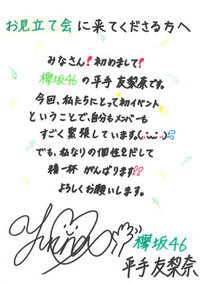 お見立て会に来てくださる方へ
みなさん!初めまして!
欅坂46の平手友梨奈です。
今回、私たちにとって初イベント
ということで、自分もメンバーも
すごく緊張しています。(..;)
でも、私なりの個性をだして
精一杯がんばります!!
よろしくお願いします。
Yurina
欅坂46
平手友梨奈